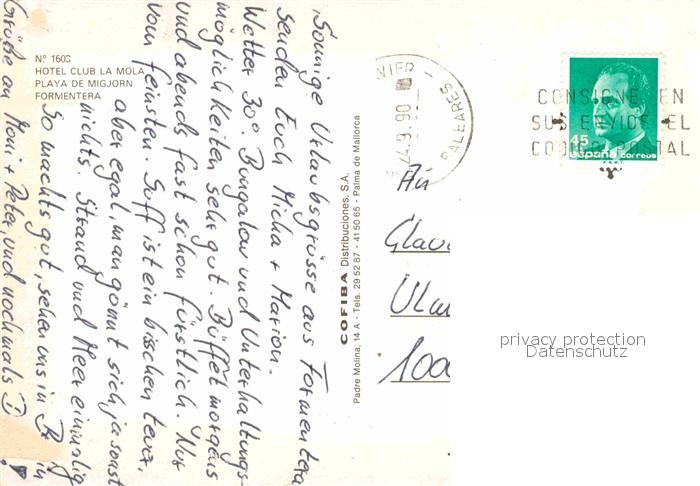 Nº 1603
HOTEL CLUB LA MOLA
PLAYA DE MIGJORN
FORMENTERA
Sonnige Urlaubsgrüsse aus Formentera
senden Euch Micha + Marion.
Wetter 30° Bungalow und Unterhaltungs-
möglichkeiten sehr gut. Büffet morgens
und abends fast schon fürstlich. Nur
vom feinsten. Suff ist ein bisschen teuer,
aber egal, man gönnt sich ja sonst
nichts. Strand und Meer einmalig
So machts gut, sehen uns in
in
Grüße an Moni + Peter, und nochmals D
!
COFIBA Distribuciones, S.A.
Padre Molina, 14 A - Tels. 29 52 87 - 41 50 65 - Palma de Mallorca
BALEARES
CONSIGNE EN
SUS ENVIOS EL
CODIGO POSTAL
45
españa correos
An
Ulm
100
privacy protection
Datenschutz